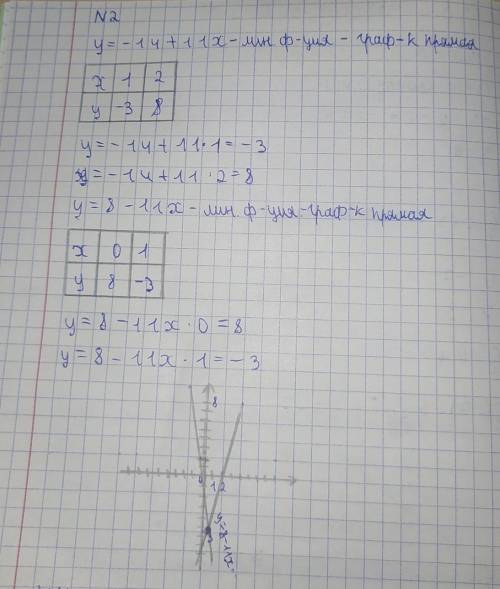 N2
y = -14 + 11x - лин. ф-ция - граф-к прямая
x 1 2
y -3 8
y = -14 + 11·1 = -3
y = -14 + 11·2 = 8
y = 8 - 11x - лин. ф-ция - граф-к прямая
x 0 1
y 8 -3
y = 8 - 11x · 0 = 8
y = 8 - 11x · 1 = -3
8
1 2
y=8-11x